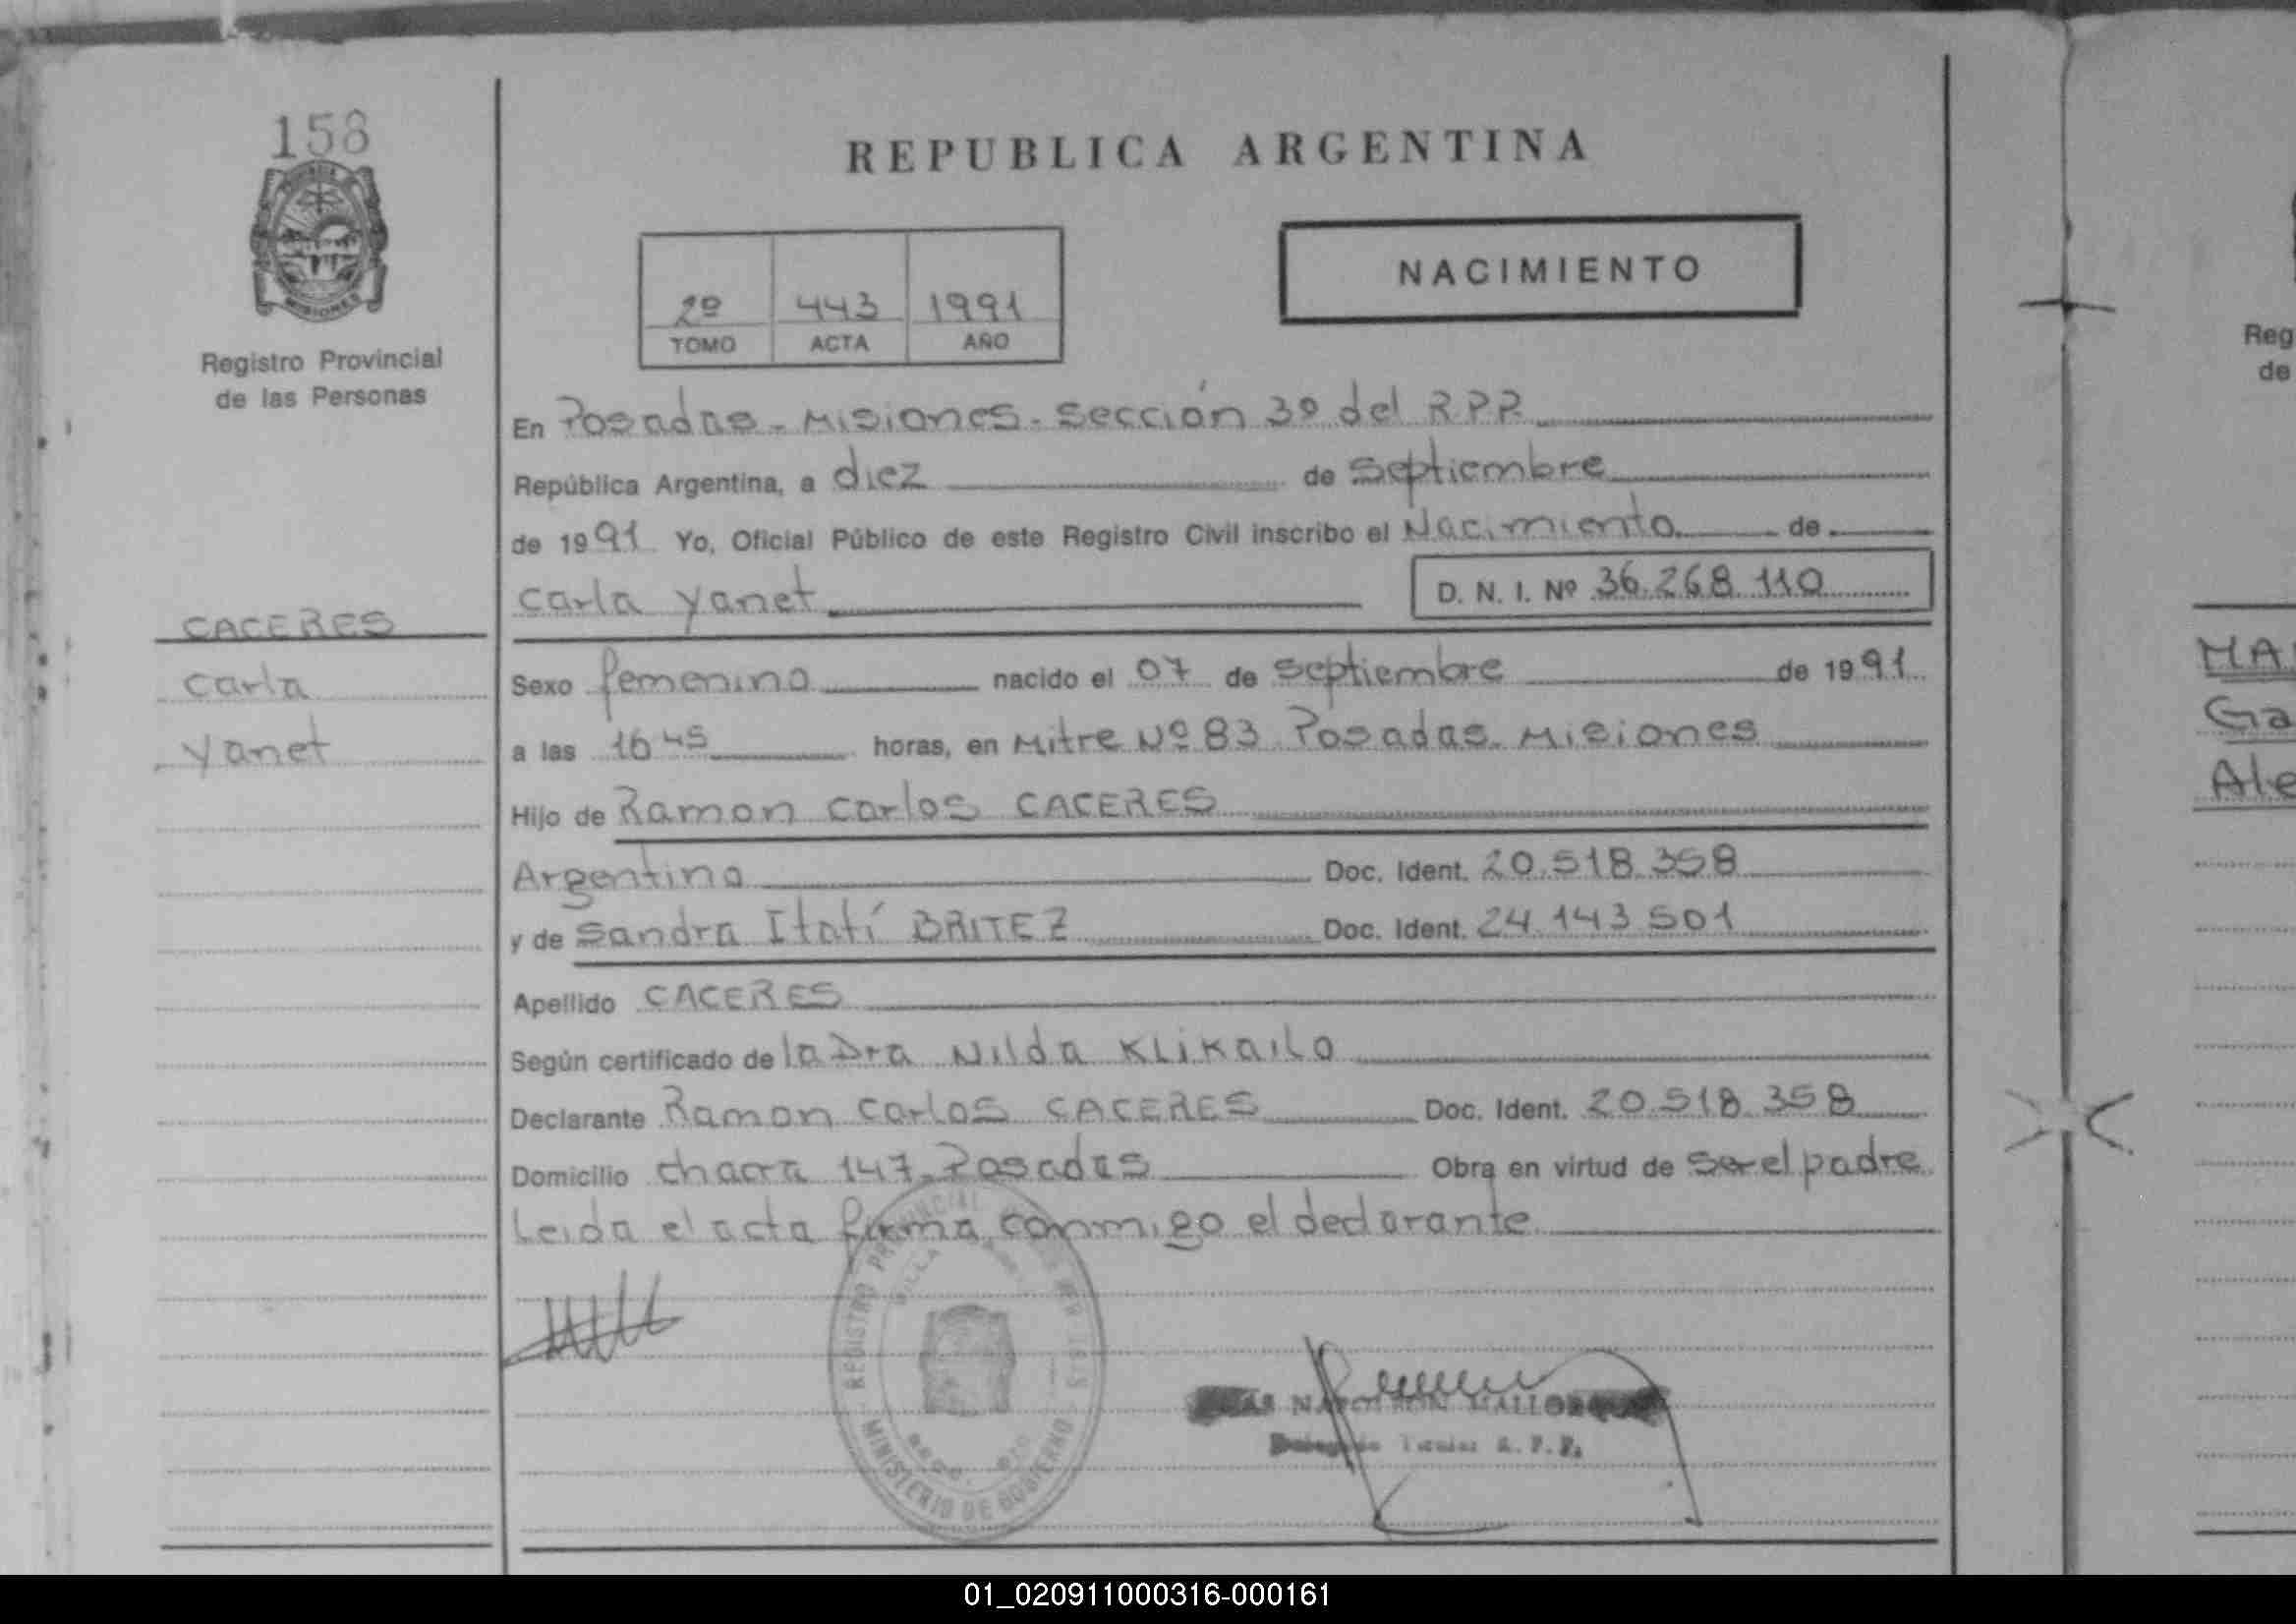 158
MISIONES
Registro Provincial
de las Personas
CACERES
Carla
Yanet
REPUBLICA ARGENTINA
2º 443 1991
TOMO ACTA AÑO
NACIMIENTO
En Posadas - Misiones - Sección 3º del R.P.P.
República Argentina, a diez de Septiembre
de 1991 Yo, Oficial Público de este Registro Civil inscribo el Nacimiento de
Carla Yanet D. N. I. Nº 36.268.110
Sexo femenino nacido el 07 de Septiembre de 1991
a las 16 45 horas, en Mitre Nº 83 Posadas. Misiones
Hijo de Ramon Carlos CACERES
Argentino Doc. Ident. 20.518.358
y de Sandra Itatí BRITEZ Doc. Ident. 24.143.501
Apellido CACERES
Según certificado de la Dra Nilda KLiKailo
Declarante Ramon Carlos CACERES Doc. Ident. 20.518.358
Domicilio chacra 147. Posadas Obra en virtud de ser el padre
Leida el acta firma conmigo el declarante
REGISTRO PROVINCIAL
MINISTERIO DE GOBIERNO
Reg
de
MA
Ga
Ale
01_020911000316-000161